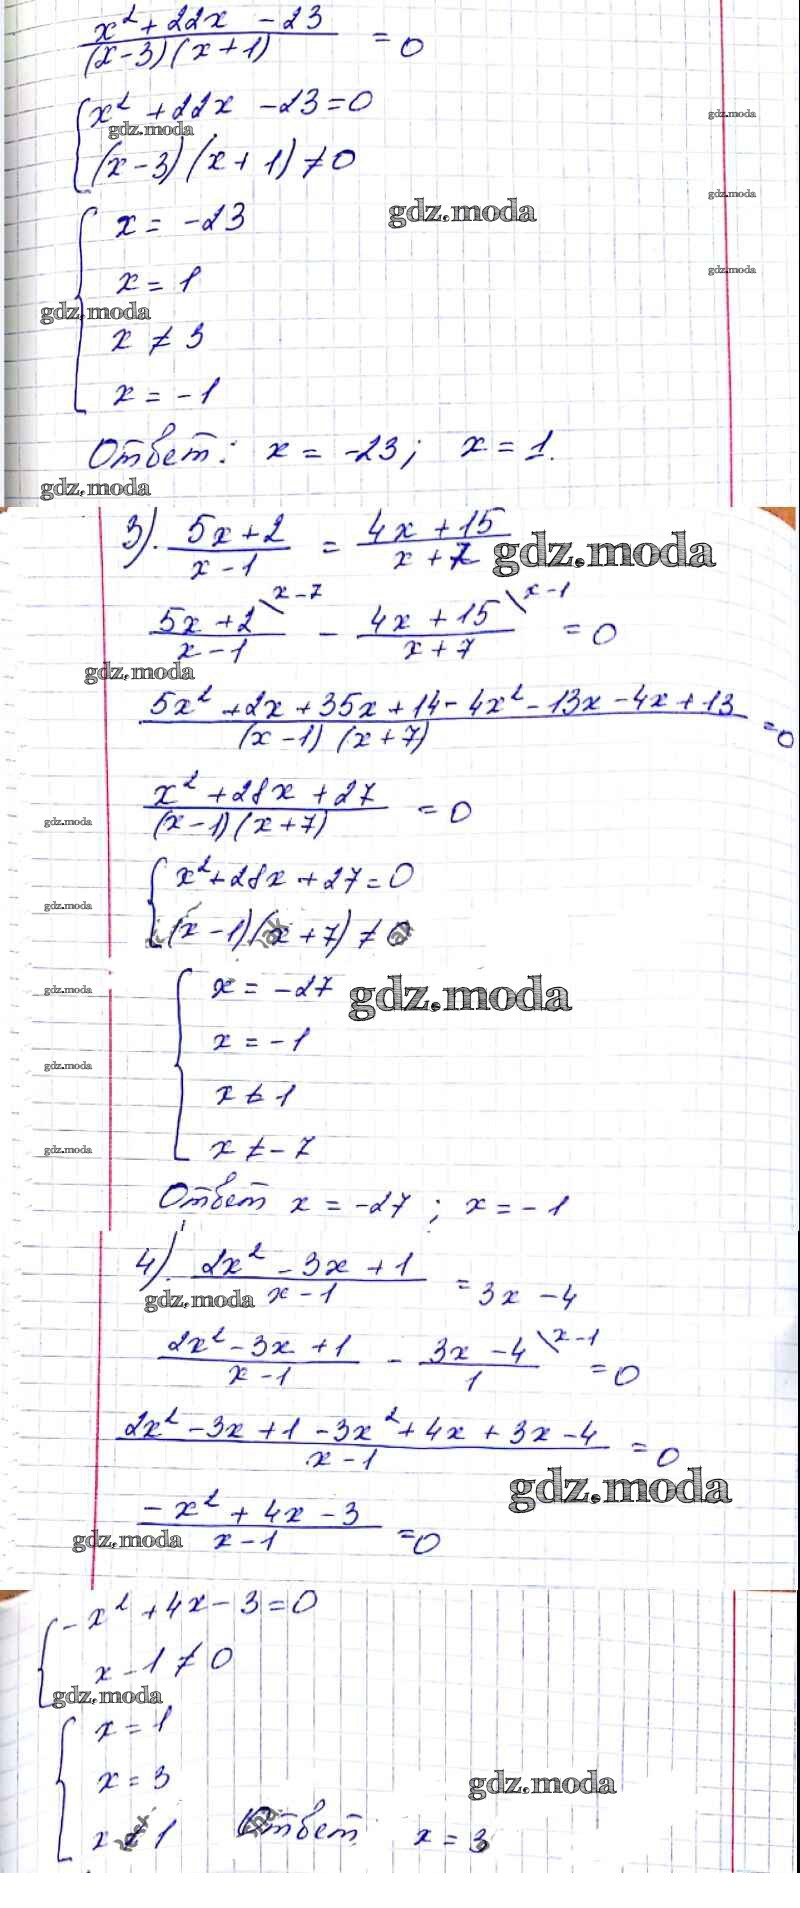 x² + 22x - 23 / (x-3)(x+1) = 0
x² + 22x - 23 = 0
gdz.moda
gdz.moda
(x-3)(x+1) ≠ 0
gdz.moda
x = -23
gdz.moda
gdz.moda
x = 1
gdz.moda
x ≠ 3
x = -1
Ответ: x = -23; x = 1.
gdz.moda
3). 5x+2 / x-1 = 4x+15 / x+7
gdz.moda
5x+2 \x-7 / x-1 - 4x+15 \x-1 / x+7 = 0
gdz.moda
5x² + 2x + 35x + 14 - 4x² - 13x - 4x + 13 / (x-1)(x+7) = 0
x² + 28x + 27 / (x-1)(x+7) = 0
gdz.moda
x² + 28x + 27 = 0
gdz.moda
(x-1)(x+7) ≠ 0
x = -27
gdz.moda
gdz.moda
x = -1
gdz.moda
x ≠ 1
x ≠ -7
gdz.moda
Ответ x = -27; x = -1
4). 2x² - 3x + 1 / x-1 = 3x - 4
gdz.moda
2x² - 3x + 1 / x-1 - 3x-4 \x-1 / 1 = 0
2x² - 3x + 1 - 3x² + 4x + 3x - 4 / x-1 = 0
gdz.moda
-x² + 4x - 3 / x-1 = 0
gdz.moda
-x² + 4x - 3 = 0
x - 1 ≠ 0
gdz.moda
x = 1
x = 3
gdz.moda
x ≠ 1
Ответ x = 3